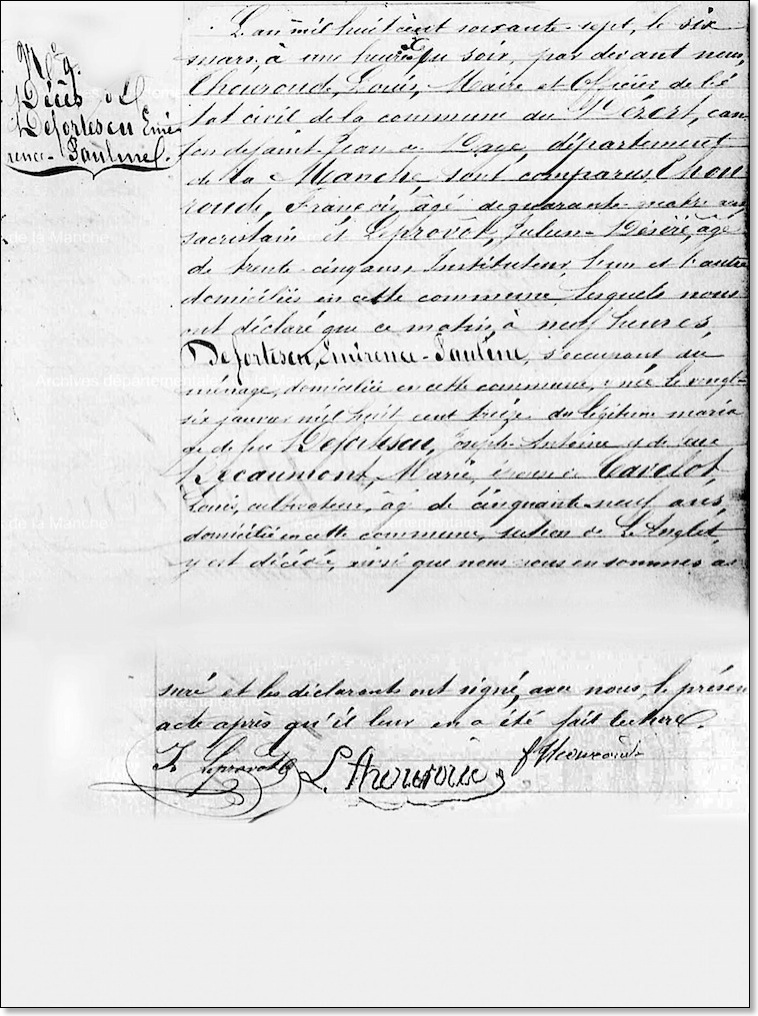 N.° 9.
Décès de
Defortescu Émé-
rence-Pauline.
L'an mil huit cent soixante-sept, le six
mars, à une heure du soir, par devant nous,
Thouroude, Louis, Maire et Officier de l'é-
tat civil de la commune du Dézert, can-
ton de saint Jean de Daye, département
de la Manche, sont comparus, Thou-
roude, François, âgé de quarante-quatre ans,
sacristain et Leprovôt, Julien-Désiré, âgé
de trente-cinq ans, Instituteur, l'un et l'autre
domiciliés en cette commune, lesquels nous
ont déclaré que ce matin, à neuf heures,
Defortescu, Émérence-Pauline, s'occupant du
ménage, domiciliée en cette commune, née le vingt-
six janvier mil huit cent treize, du légitime maria-
ge de feu Defortescu, Joseph-Antoine et de feue
Beaumont, Marie, épouse de Cavelot,
Louis, cultivateur, âgé de cinquante-neuf ans,
domicilié en cette commune, section de L'Anglet,
y est décédée, ainsi que nous nous en sommes as-
suré et les déclarants ont signé, avec nous, le présent
acte après qu'il leur en a été fait lecture.
J. Leprovôt L. Thouroude f Thouroude
Archives départementales de la Manche